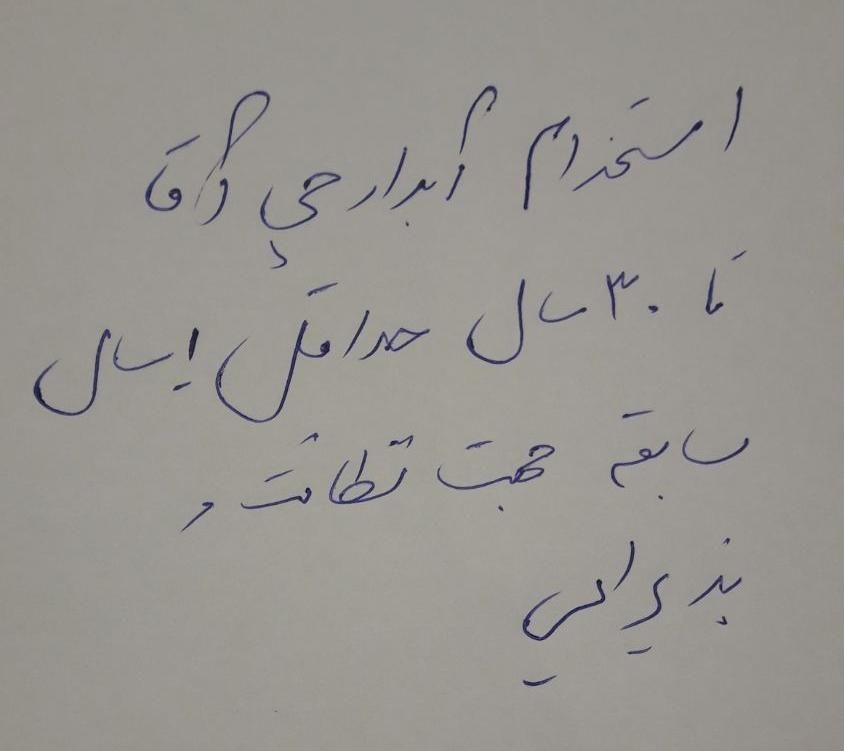 استخدام آبدارچی وآقا
تا ۳۰ سال حداقل ۱سال
سابقه جهت نظافت و
پذیرایی